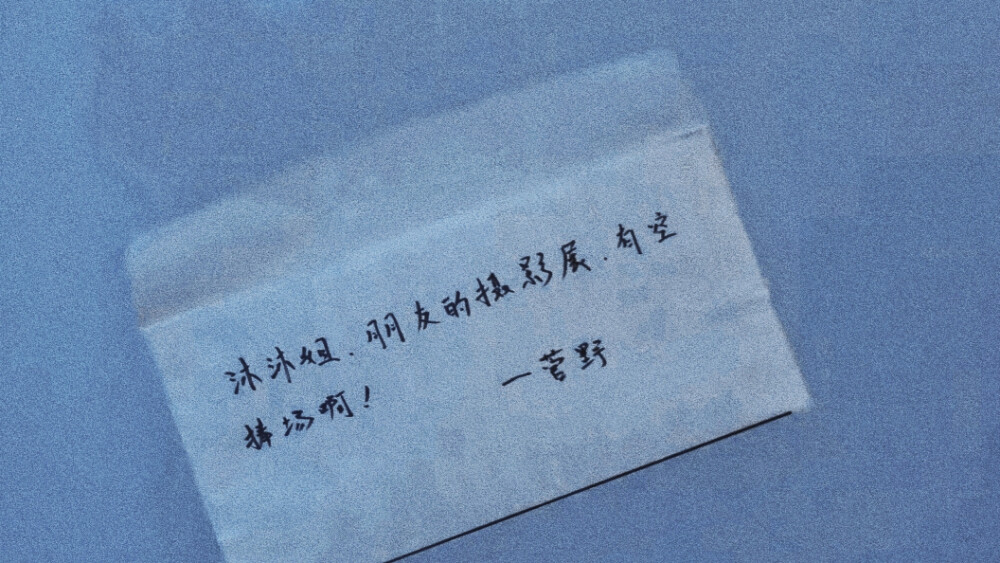 沐沐姐、朋友的摄影展、有空
捧场啊！
一菅野